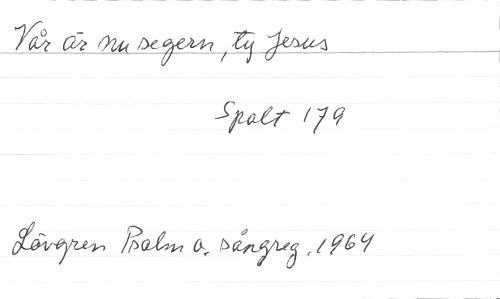 Vår är nu segern, ty Jesus
Spalt 179
Lövgren Psalm o. sångreg. 1964